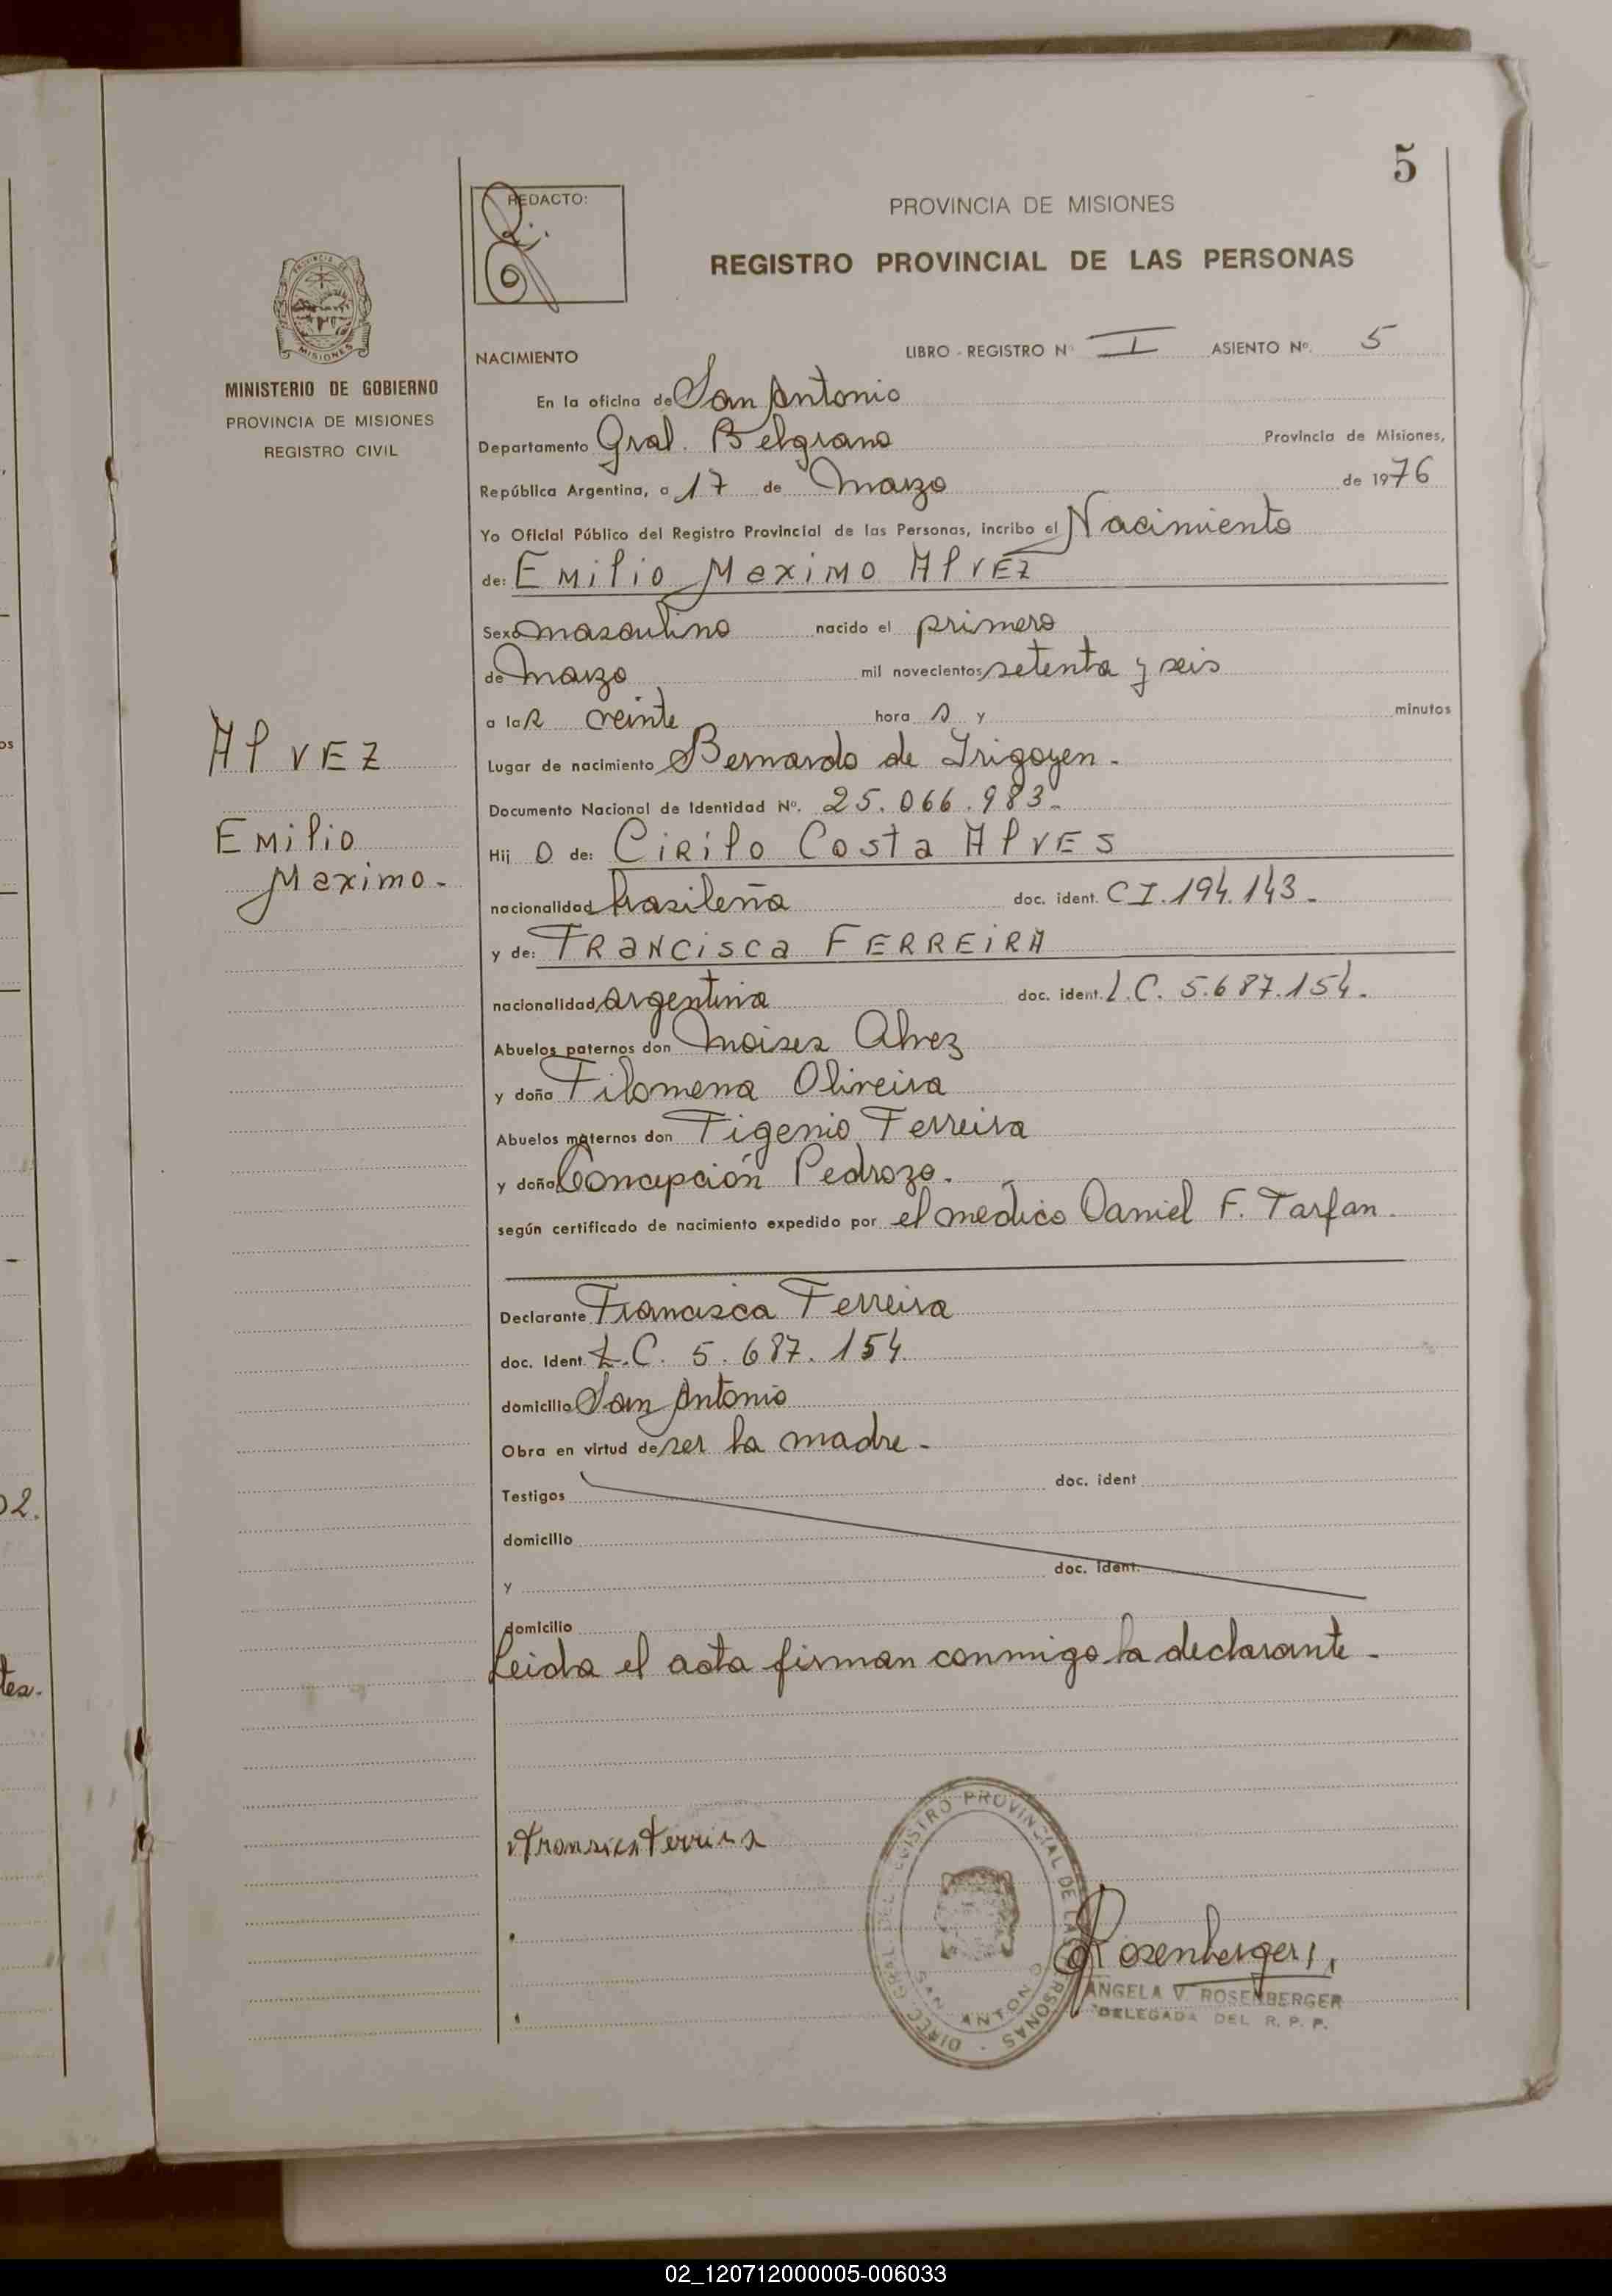 5
REDACTO:
PROVINCIA DE MISIONES
REGISTRO PROVINCIAL DE LAS PERSONAS
PROVINCIA DE
MISIONES
MINISTERIO DE GOBIERNO
PROVINCIA DE MISIONES
REGISTRO CIVIL
NACIMIENTO LIBRO - REGISTRO Nº I ASIENTO Nº. 5
En la oficina de San Antonio
Departamento Gral. Belgrano Provincia de Misiones,
República Argentina, a 17 de Marzo de 1976
Yo Oficial Público del Registro Provincial de las Personas, incribo el Nacimiento
de: Emilio Maximo AlVEZ
Sexo masculino nacido el primero
de Marzo mil novecientos setenta y seis
a las veinte hora s y minutos
Lugar de nacimiento Bernardo de Irigoyen.
Documento Nacional de Identidad Nº. 25.066.983.
Hij o de: Cirilo Costa AlVES
nacionalidad brasileña doc. ident. C I. 194.143.
y de: FRANCISCA FERREIRA
nacionalidad argentina doc. ident. L.C. 5.687.154.
Abuelos paternos don Moises Alvez
y doña Filomena Oliveira
Abuelos maternos don Figenio Ferreira
y doña Concepción Pedrozo.
según certificado de nacimiento expedido por el médico Daniel F. Tarfan.
Declarante Francisca Ferreira
doc. Ident. L.C. 5.687.154.
domicilio San Antonio
Obra en virtud de ser la madre.
Testigos doc. ident
domicilio
y doc. ident.
domicilio
Leida el acta firman conmigo la declarante.
AlVEZ
Emilio
Maximo.
02.
tes.
os
DIREC. GRAL. DEL REGISTRO PROVINCIAL DE LAS PERSONAS
SAN ANTONIO
Rosenberger
ANGELA V. ROSENBERGER
DELEGADA DEL R. P. P.
02_120712000005-006033